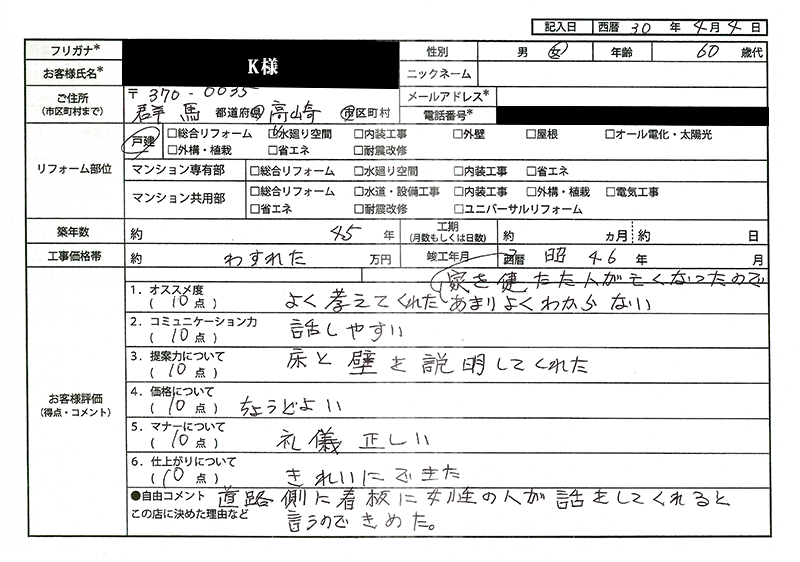 記入日 西暦 30 年 4月 4日
フリガナ* 性別 男 女 年齢 60 歳代
お客様氏名* K様 ニックネーム
ご住所 (市区町村まで) 〒370-0035 メールアドレス*
群馬 都道府県 高崎 市区町村 電話番号*
リフォーム部位
戸建 □総合リフォーム □水廻り空間 □内装工事 □外壁 □屋根 □オール電化・太陽光
□外構・植栽 □省エネ □耐震改修
マンション専有部 □総合リフォーム □水廻り空間 □内装工事 □省エネ
マンション共用部 □総合リフォーム □水道・設備工事 □内装工事 □外構・植栽 □電気工事
□省エネ □耐震改修 □ユニバーサルリフォーム
築年数 約 45 年 工期 (月数もしくは日数) 約 ヵ月 約 日
工事価格帯 約 わすれた 万円 竣工年月 西暦 昭 46 年 月
お客様評価 (得点・コメント)
家を建たた人が亡くなったので
1. オススメ度
( 10 点 ) よく考えてくれた あまりよくわからない
2. コミュニケーション力
( 10 点 ) 話しやすい
3. 提案力について
( 10 点 ) 床と壁を説明してくれた
4. 価格について
( 10 点 ) ちょうどよい
5. マナーについて
( 10 点 ) 礼儀正しい
6. 仕上がりについて
( 10 点 ) きれいにできた
●自由コメント 道路側に看板に女性の人が話をしてくれると
この店に決めた理由など 言うのできめた。